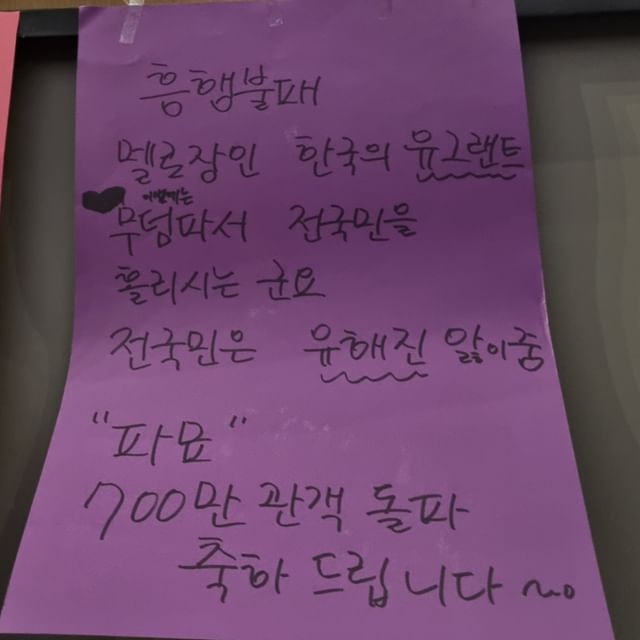 흥행불패
멜로장인 한국의 유그랜트
이번에는
무덤파서 전국민을
홀리시는 군요
전국민은 유해진 앓이중
"파묘"
700만 관객 돌파
축하 드립니다~o